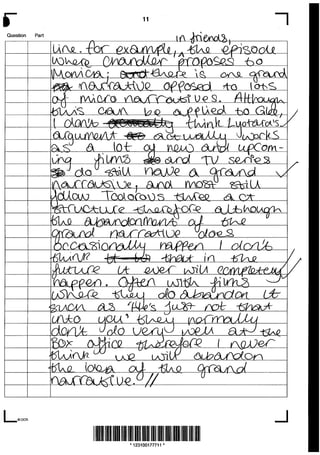 11
Question Part
in friends,
line. for example, the episode
where Chandler proposes to
Monica; there is one grand
narrative opposed to lots
of micro narratives. Although
this can be applied to Glee,
I don't think Lyotard's
argument actually works
as a lot of new and upcom-
ing films and TV series
do still have a grand
narrative, and most still
follow Todorovs three act
structure therefore although
the abandonment of the
grand narrative does
occasionally happen I don't
think that in the
future it ever will completely
happen. Often with films
where they do abandon it
such as 'He's just not that
into you' they normally
don't do very well at the
Box office therefore I never
think we will abandon
the idea of the grand
narrative. //
* 12310017771 1 *